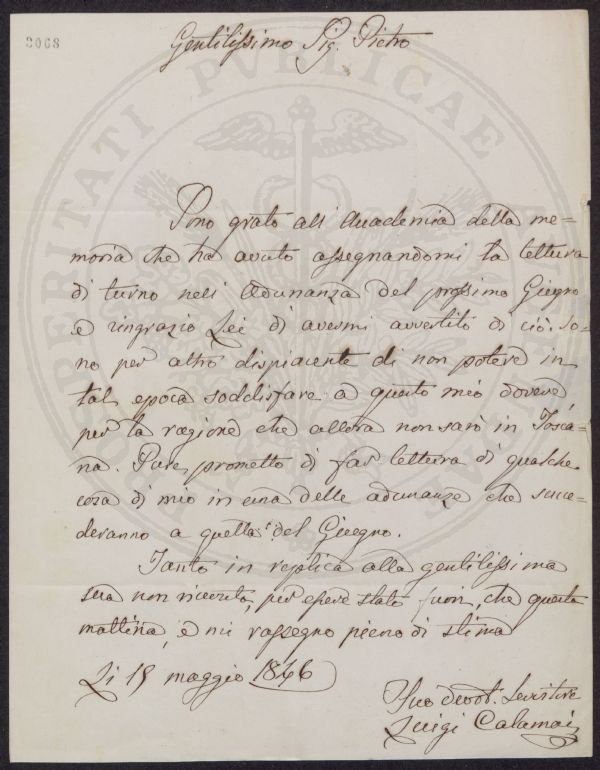 2068
Gentilissimo Sig. Pietro
PROSPERITATI PVBLICAE AVGENDAE
Sono grato all' Accademia della me=
moria che ha avuto assegnandomi la lettura
di turno nell' Adunanza del prossimo Giugno
e ringrazio Lei di avermi avvertito di ciò. So=
no per altro dispiacente di non potere in
tal epoca soddisfare a questo mio dovere
per la ragione che allora non sarò in Tosca=
na. Pure prometto di far lettura di qualche
cosa di mio in una delle adunanze che succe=
deranno a quella del Giugno.
Tanto in replica alla gentilissima
sua non ricevuta, per essere stato fuori, che questa
mattina, e mi rassegno pieno di stima
Li 15 maggio 1846
Suo devot. Servitore
Luigi Calamai